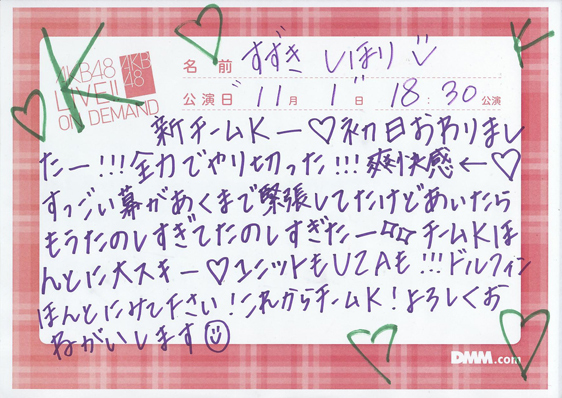 K
K
AKB48
LIVE!!
ON DEMAND
AKB
48
名 前 すずき しほり
公演日 11月 1日 18:30 公演
新チームKー♡初日おわりまし
たー!!!全力でやり切った!!!爽快感←♡
すっごい幕があくまで緊張してたけどあいたら
もうたのしすぎてたのしすぎたー チームKほ
んとに大スキー♡ユニットもUZAも!!!ドルフィン
ほんとにみて下さい!これからチームK!よろしくお
ねがいします☺
DMM.com